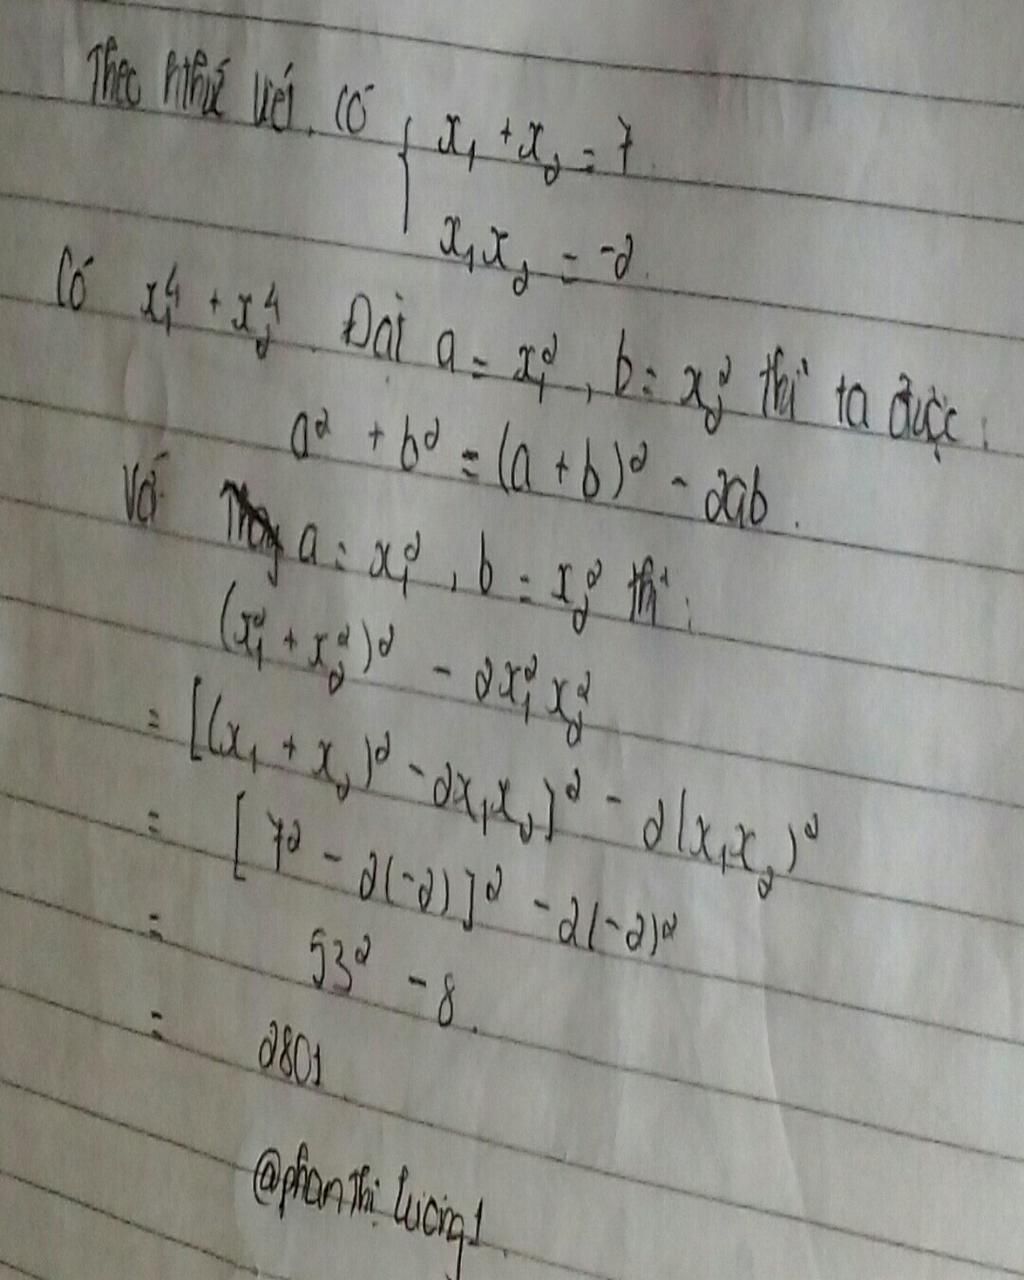 Theo hthức Viét. Có { x₁ + x₂ = 7.
x₁x₂ = -2.
Có x₁⁴ + x₂⁴. Đặt a = x₁², b = x₂² thì ta được:
a² + b² = (a + b)² - 2ab.
Với a = x₁², b = x₂² thì:
(x₁² + x₂²)² - 2x₁²x₂²
= [(x₁ + x₂)² - 2x₁x₂]² - 2(x₁x₂)²
= [7² - 2(-2)]² - 2(-2)²
= 53² - 8.
= 2801
@phanthị lương1.